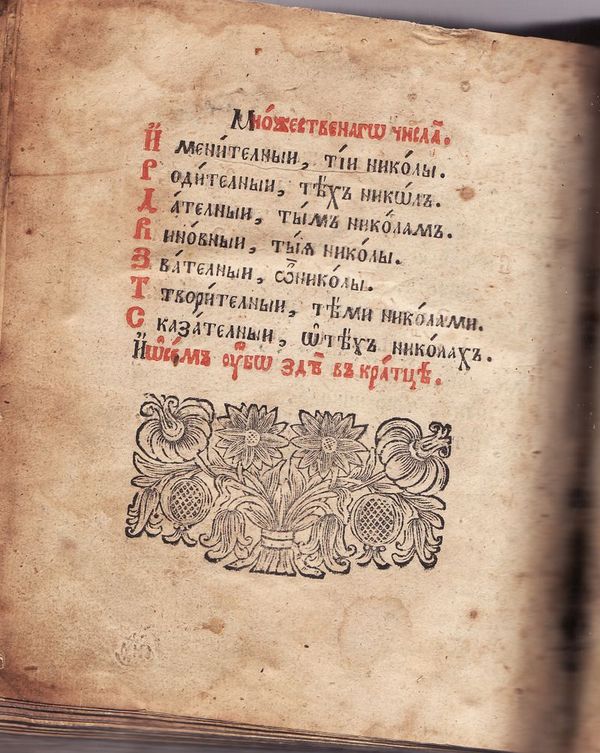 Мно́жественагѡ числа̀.
И҆мени́телныи, ті́и нико́лы.
Роди́телныи, тѣ́хъ нико́лъ.
Да́телныи, ты́мъ нико́ламъ.
Вино́вныи, ты́ѧ нико́лы.
Зва́телныи, ѽнико́лы.
Ттвори́телныи, тѣ́ми нико́лами.
Сказа́телныи, ѡ҆тѣ́хъ нико́лахъ.
И҆ѡ҆се́мъ ᲂу҆́бѡ здѣ̀ въ кра́тцѣ.